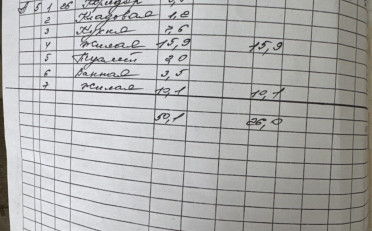 5 1 26 Коридор
2 Кладовая 1,2
3 Кухня 7,6
4 жилая 15,9 15,9
5 Туалет
6 Ванная 3,5
7 жилая 19,1 19,1
50,1 35,0